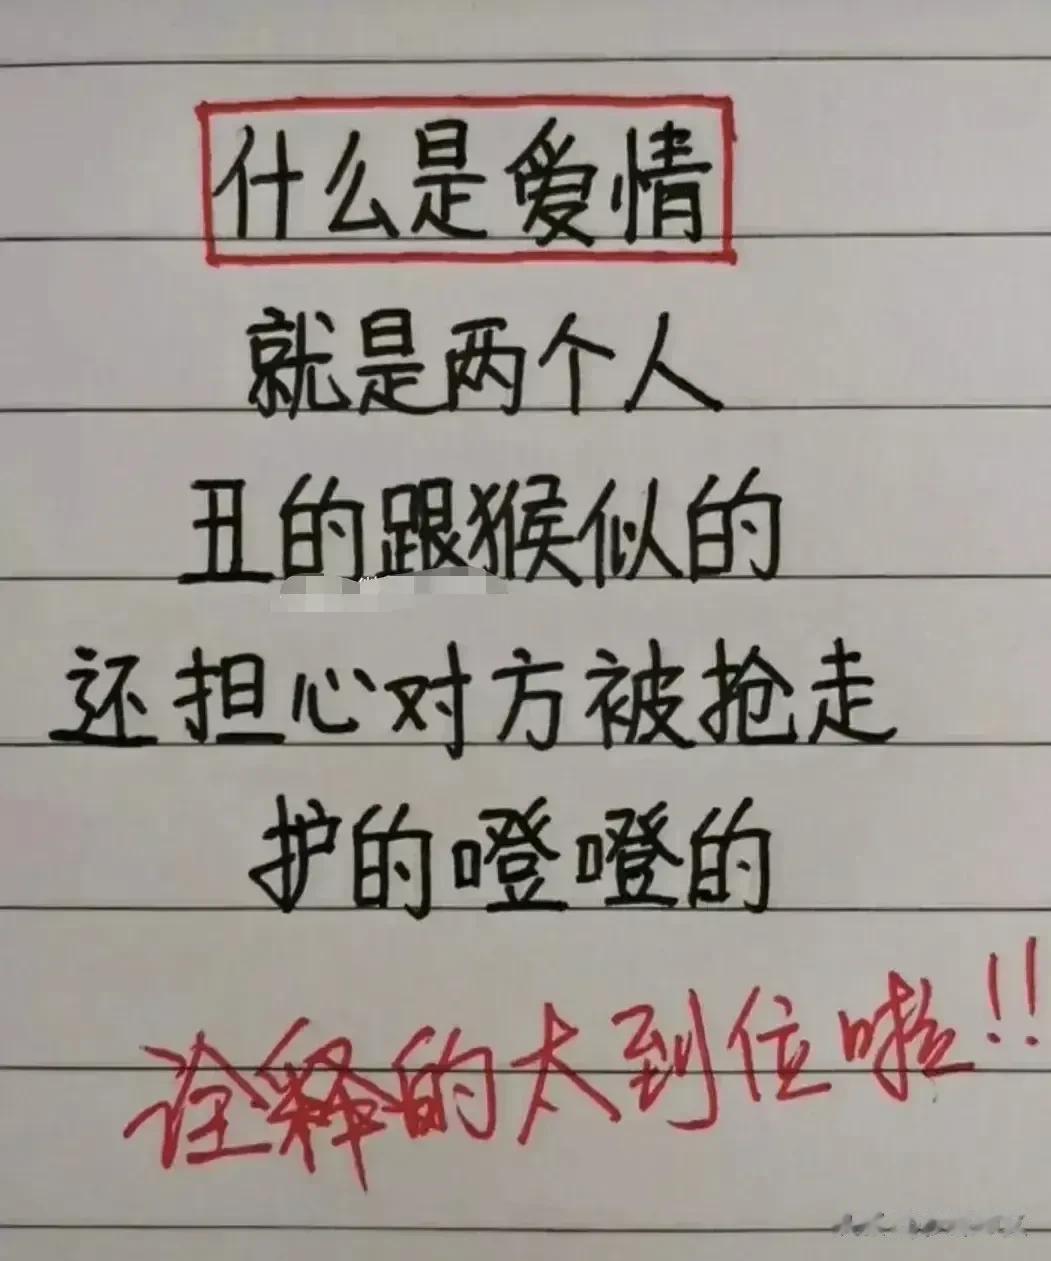 什么是爱情
就是两个人
丑的跟猴似的
还担心对方被抢走
护的噔噔的
诠释的太到位啦!!